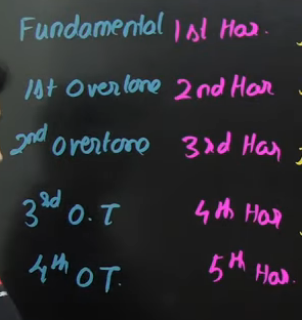 Fundamental 1st Har.
1st Overtone 2nd Har
2nd overtone 3rd Har
3rd O.T 4th Har
4th O T. 5th Har.